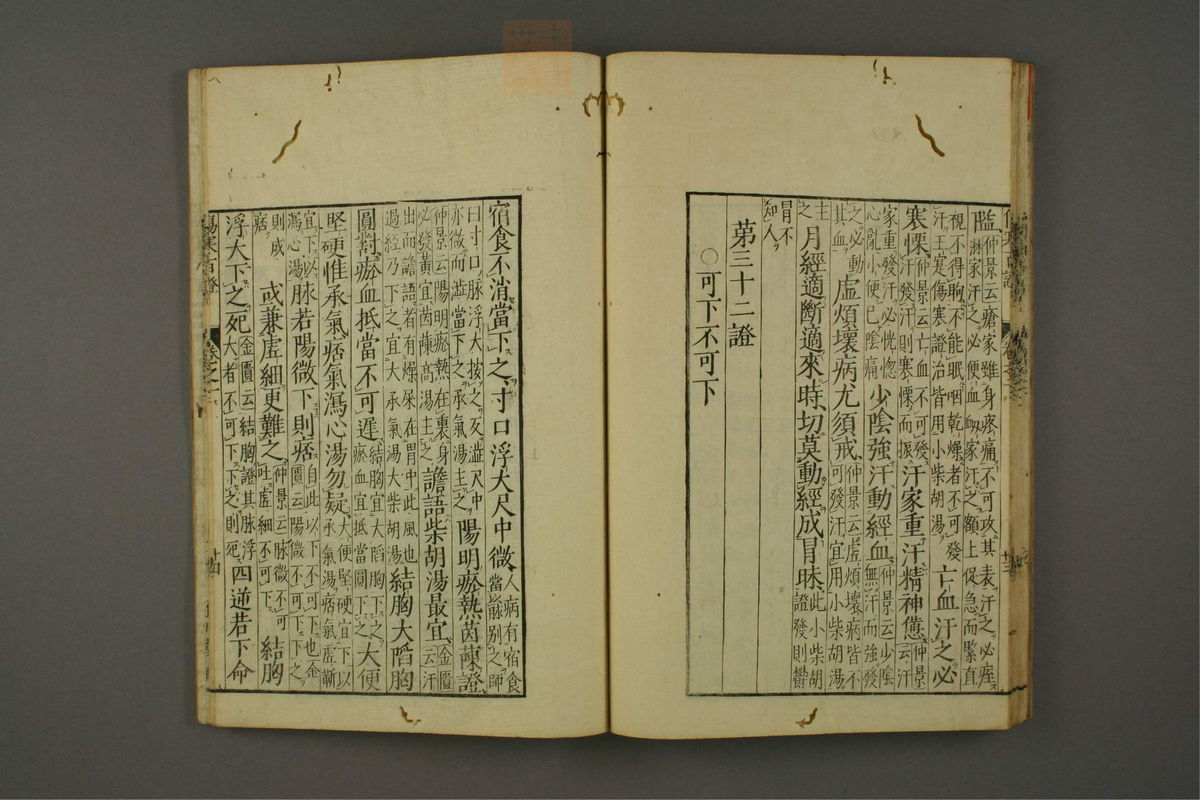 仲景云瘡家雖身疼痛不可攻其表汗之必痓淋家汗之必便血衂家汗之額上促急而緊直
視不得眴不能眠咽乾燥者不可發汗王寔傷寒證治皆用小柴胡湯亡血汗之必
寒慄仲景云亡血不可發汗發汗則寒慄而振汗家重汗精神憊仲景云汗
家重發汗必恍惚心亂小便已陰痛少陰強汗動經血仲景云少陰無汗而強發
之必動其血虛煩壞病尤須戒仲景云虛煩壞病皆不可發汗宜用小柴胡湯
主之月經適斷適來時切莫動經成冐昧此小柴胡證發則欝
冐不知人
第三十二證
○可下不可下
宿食不消當下之寸口浮大尺中微人病有宿食當脉別之師
曰寸口脉浮大按之反濇尺中亦微而濇當下之承氣湯主之陽明瘀熱茵蔯證
仲景云陽明瘀熱在裏身必發黃宜茵蔯蒿湯主之譫語柴胡湯最宜金匱云汗
出而譫語者有燥屎在胃中此風也過經乃下之宜大承氣湯大柴胡湯結胸大陷胸
圓對瘀血抵當不可遲結胸宜大陷胸下之瘀血宜抵當圓下之大便
堅硬惟承氣痞氣瀉心湯勿疑大便堅硬宜下以承氣湯痞氣虛靳
宜下以瀉心湯脉若陽微下則痞自此以下不可下也金匱云陽微不可下下之
則成痞或兼虛細更難之仲景云脉微不可吐虛細不可下結胸
浮大下之死金匱云結胸證其脉浮大者不可下下之則死四逆若下命